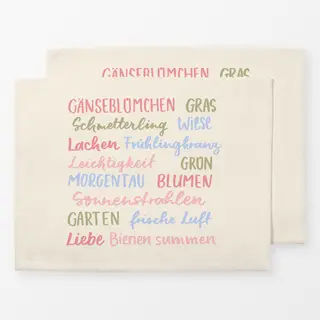 GÄNSEBLÜMCHEN GRAS
GÄNSEBLÜMCHEN GRAS
Schmetterling Wiese
Lachen Frühlingkranz
Leichtigkeit GRÜN
MORGENTAU BLUMEN
Sonnenstrahlen
GARTEN frische Luft
Liebe Bienen summen